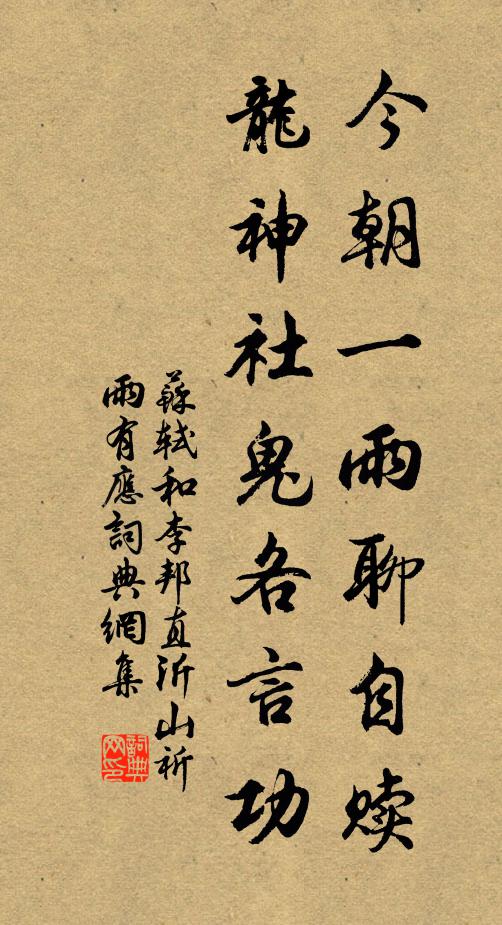 今朝一雨聊自赎
龍神社鬼各言功
蘇軾和李邦直沂山祈
雨有應詞典網集
詞典
网印